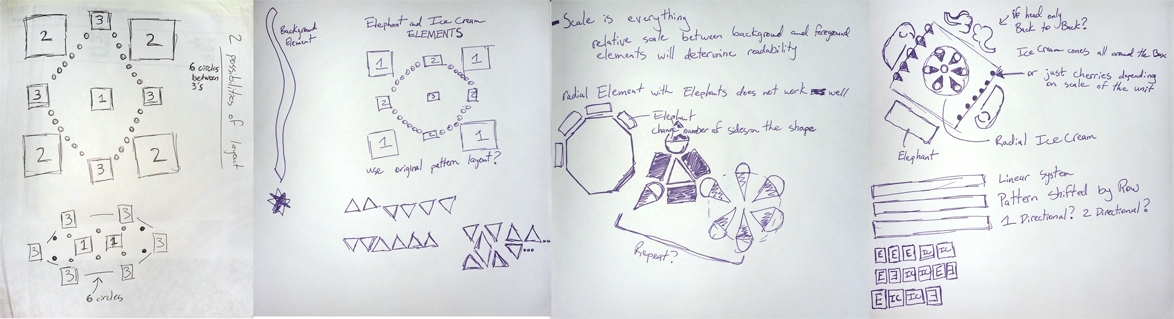 3
2
2
6 circles
between
3's
3
1
3
2
2
3
2 possibilities of layout
3
3
3
1
1
3
3
3
6 circles
Background
Element
Elephant and Ice Cream
ELEMENTS
1
2
1
2
3
2
1
2
1
use original pattern layout?
- Scale is everything
relative scale between background and foreground
elements will determine readability
radial Element with Elephants does not work well
Elephant
change number of sides on the shape
Repeat?
head only
Back to Back?
Ice Cream cones all around the Box
or just cherries depending
on scale of the unit
Elephant
Radial Ice Cream
Linear system
Pattern shifted by Row
1 Directional? 2 Directional?
E E E IC IC
E E IC IC E E
E IC IC E